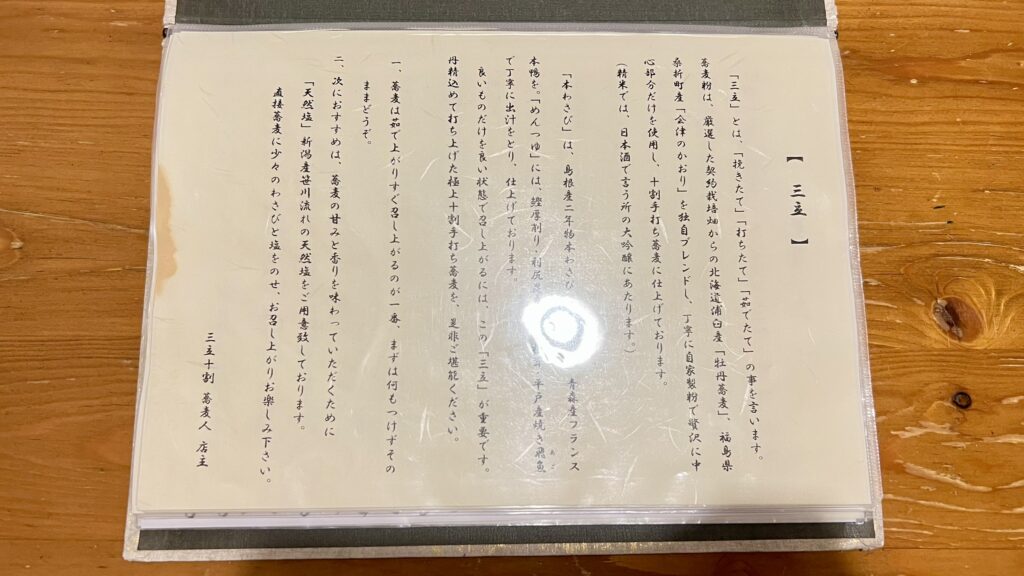 【三立】
「三立」とは、「挽きたて」「打ちたて」「茹でたて」の事を言います。
蕎麦粉は、厳選した契約栽培畑からの北海道浦臼産「牡丹蕎麦」、福島県
桑折町産「会津のかおり」を独自ブレンドし、丁寧に自家製粉で贅沢に中
心部分だけを使用し、十割手打ち蕎麦に仕上げております。
(精米では、日本酒で言う所の大吟醸にあたります。)
「本わさび」は、島根産二年物本わさび 青森産フランス
本鴨を。「めんつゆ」には、鰹厚削り、利尻 平戸産焼き飛魚
あご
で丁寧に出汁をとり、仕上げております。
良いものだけを良い状態で召し上がるには、この「三立」が重要です。
丹精込めて打ち上げた極上十割手打ち蕎麦を、是非ご堪能ください。
一、蕎麦は茹で上がりすぐ召し上がるのが一番、まずは何もつけずその
ままどうぞ。
二、次におすすめは、蕎麦の甘みと香りを味わっていただくために
「天然塩」新潟産笹川流れの天然塩をご用意致しております。
直接蕎麦に少々のわさびと塩をのせ、お召し上がりお楽しみ下さい。
三立十割 蕎麦人 店主